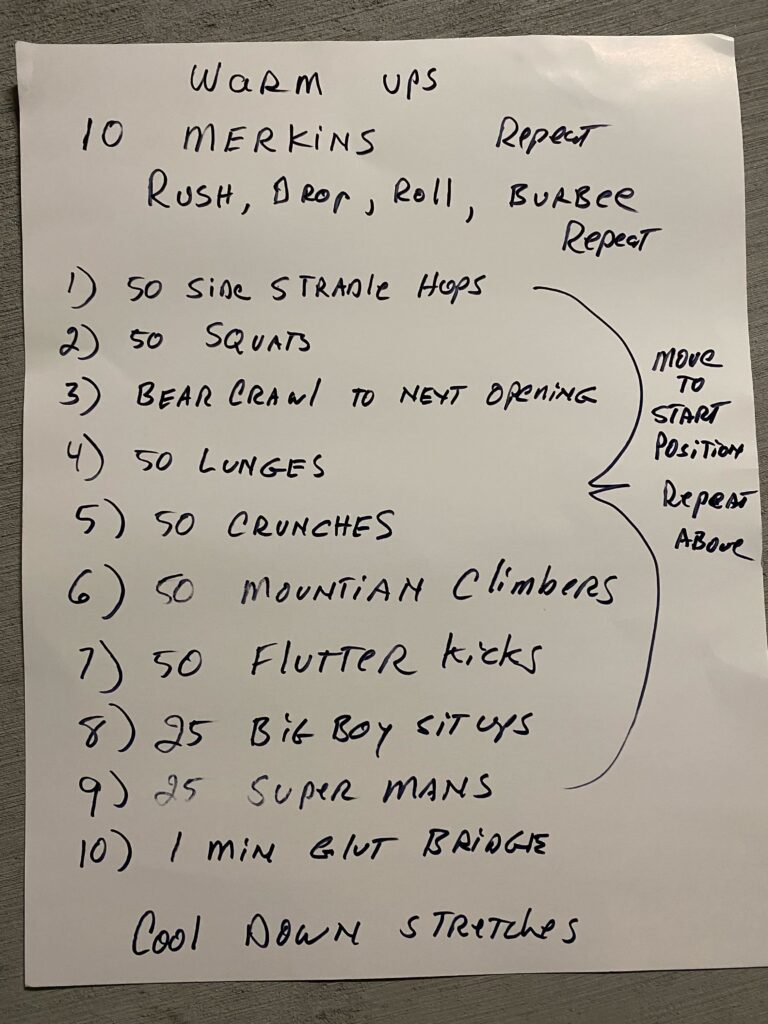 WARM UPS
10 MERKINS Repeat
RUSH, DROP, ROLL, BURBEE
Repeat
1) 50 SIDE STRADLE HOPS
2) 50 SQUATS
3) BEAR CRAWL TO NEXT OPENING
4) 50 LUNGES
5) 50 CRUNCHES
6) 50 MOUNTIAN Climbers
7) 50 Flutter kicks
8) 25 BIG BOY SIT UPS
9) 25 SUPER MANS
10) 1 MIN GLUT BRIDGE
MOVE
TO
START
POSITION
Repeat
ABOVE
Cool DOWN STRETCHES